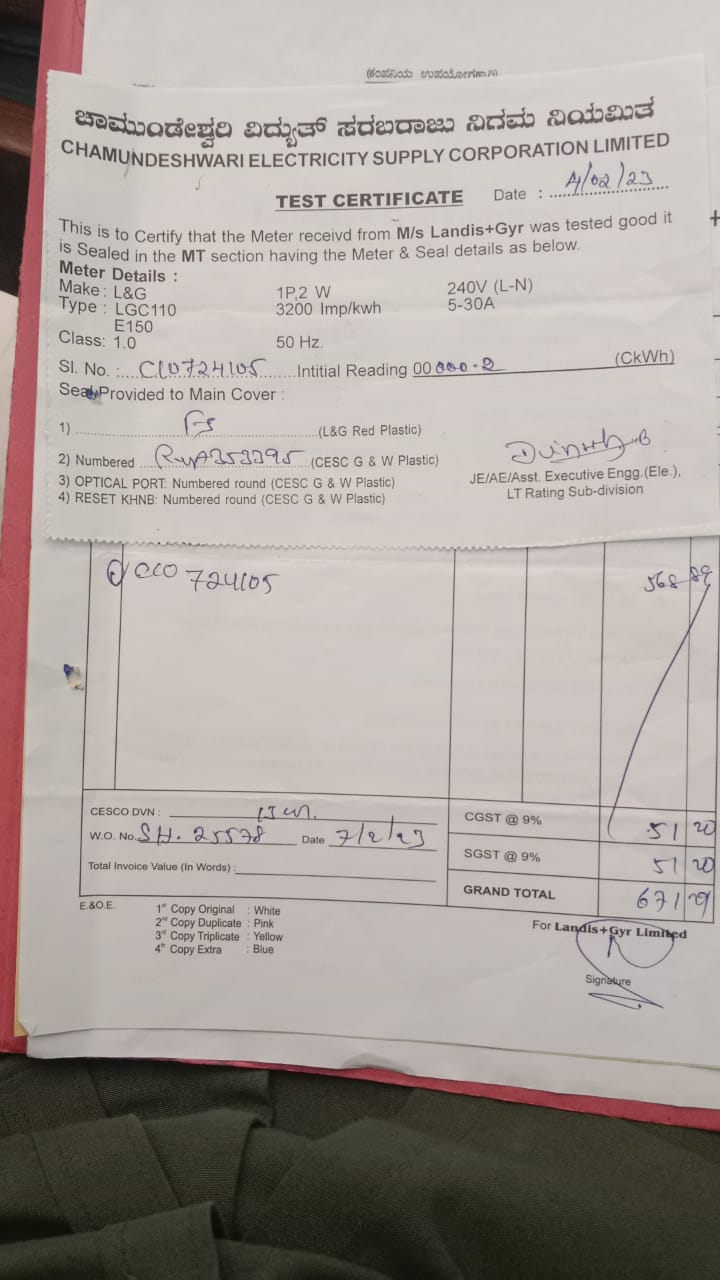 (ಕಂಪನಿಯ ಉಪಯೋಗಕ್ಕಾಗಿ)
ಚಾಮುಂಡೇಶ್ವರಿ ವಿದ್ಯುತ್ ಸರಬರಾಜು ನಿಗಮ ನಿಯಮಿತ
CHAMUNDESHWARI ELECTRICITY SUPPLY CORPORATION LIMITED
TEST CERTIFICATE Date : 4/02/23
This is to Certify that the Meter receivd from M/s Landis+Gyr was tested good it
is Sealed in the MT section having the Meter & Seal details as below.
Meter Details :
Make : L&G 1P,2 W 240V (L-N)
Type : LGC110 3200 Imp/kwh 5-30A
E150
Class: 1.0 50 Hz.
Sl. No. : C10724105 Intitial Reading 00 000.2 (CkWh)
Seal Provided to Main Cover :
1) (L&G Red Plastic)
2) Numbered (CESC G & W Plastic)
3) OPTICAL PORT: Numbered round (CESC G & W Plastic)
4) RESET KHNB: Numbered round (CESC G & W Plastic)
JE/AE/Asst. Executive Engg.(Ele.),
LT Rating Sub-division
724105 568 89
CESCO DVN : CGST @ 9% 51 20
W.O. No. SH. 25578 Date 7/2/23
SGST @ 9% 51 20
Total Invoice Value (In Words) :
GRAND TOTAL 671 29
E.&O.E. 1st Copy Original : White
2nd Copy Duplicate : Pink
3rd Copy Triplicate : Yellow
4th Copy Extra : Blue
For Landis+Gyr Limited
Signature